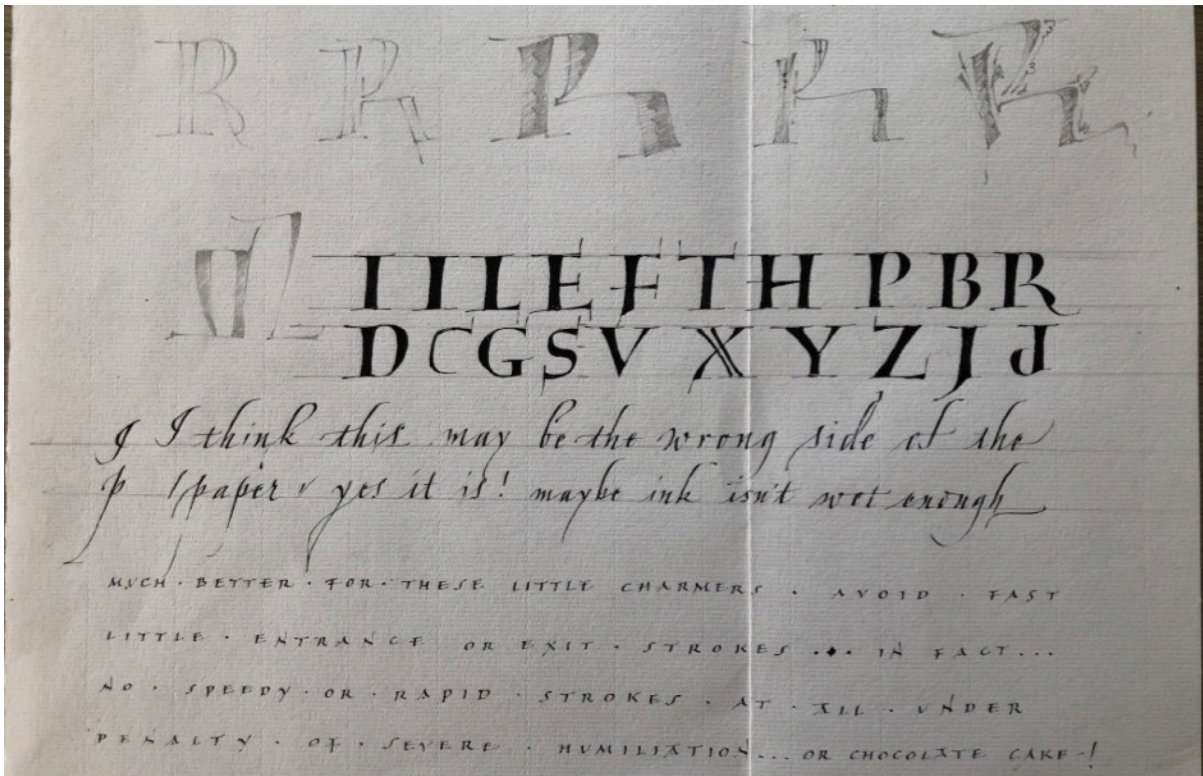 R R R R R
I I L E F T H P B R
D C G S V X Y Z J J
I I think this may be the wrong side of the
p paper yes it is! maybe ink isn't wet enough
MUCH · BETTER · FOR · THESE LITTLE CHARMERS · AVOID · FAST
LITTLE · ENTRANCE OR EXIT · STROKES ··· IN FACT...
NO · SPEEDY · OR · RAPID · STROKES · AT · ALL · UNDER
PENALTY · OF · SEVERE · HUMILIATION... OR CHOCOLATE CAKE-!